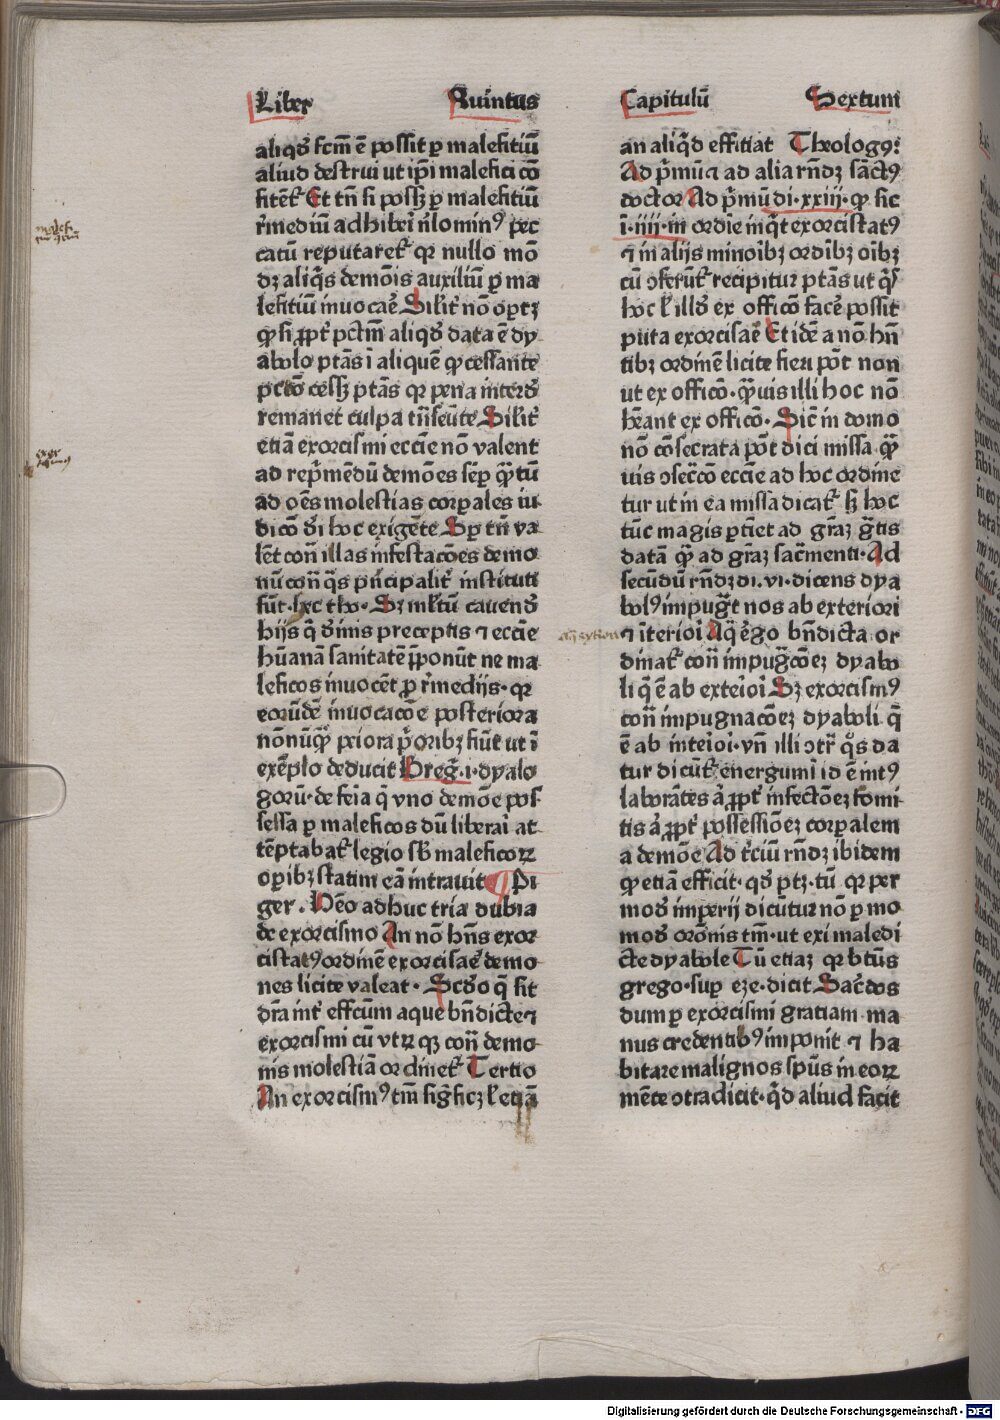 Liber Quintus Capitulū Sextum
aliqd̕ fcm̄ ē possit ꝑ malefitiū
aliud destrui ut ip̄i malefici cō
fitēt᷑ Et tn̄ si possꝫ ꝑ malefitiū
r̄mediū adhiberi n̄lomin⁹ pec
catū reputaret᷑ qꝛ nullo mō
dꝫ aliq̄s demōis auxiliū ꝑ ma
lefitiū inuocare Silit̄ nō oꝑtꝫ
ꝙ si ꝓpt̄ pctm̄ aliqd̕ data ē dy
abolo ptās ī aliquē ꝙ cessante
pctō cessꝫ ptās qꝛ pena interd̕
remanet culpa trāseūte Silit̄
etiā exorcismi eccīe nō valent
ad rep̄mēdū demōes semꝑ q̄ꝫtū
ad oēs molestias corꝑales iu
dicō di hoc exigēte Sꝑ tn̄ va
lēt con̄ illas infestacōes demo
nū con̄ q̄s pn̄cipalit̄ instituti
sūt·hec tho· Sꝫ ml̄tū cauend̕
hijs q̄ diuinis preceptis ⁊ eccīe
hūanā sanitatē p̄ponūt ne ma
leficos inuocēt ꝓ r̄medijs· qꝛ
eorūdē inuocacōe posteriora
nōnūq̄ꝫ peiora p̄oribꝫ fiūt ut ī
exēplo deducit Greḡ·i·dyalo
gorū· de feīa q̄ vno demōe pos
sessa ꝑ maleficos dū liberari at
tēptabat᷑ legio sb̄ maleficoꝝ
oꝑibꝫ statim eā intrauit ¶ Pi
ger· Mōeo adhuc tria dubia
de exorcismo An nō hn̄s exor
cistat⁹ ordinē exorcisare demo
nes licite valeat· Scd̕o q̄ sit
dr̄a int̄ effcūm aque bn̄dicte ⁊
exorcismi cū vtꝝqꝫ con̄ demo
nis molestiā ordinet᷑ Tertio
An exorcism⁹ tm̄ siḡficꝫ l̕ etiā
an aliq̄d effitiat Theolog⁹:
Ad p̄mū ⁊ ad alia rn̄dꝫ sāct⁹
doctor Ad p̄mū di·xxiij·ꝙ sic
ī·iiij·in ordīe inq̄t exorcistat⁹
⁊ in alijs minoībꝫ ordībꝫ oībꝫ
cū ꝯferūt᷑ recipitur ptās ut q̄s
hoc l̕ illd̕ ex officō facere possit
puta exorcisare Et idē a nō hn̄
tibꝫ ordinē licite fieri pōt non
ut ex officō·q̄ꝫuis illi hoc nō
hēant ex officō· Sic̄ in domo
nō cōsecrata pōt dici missa q̄ꝫ
uis ꝯsecc̄o eccīe ad hoc ordine
tur ut in ea missa dicat᷑ sꝫ hoc
tūc magis ꝑtīet ad gr̄aꝫ gr̄tis
datā q̄ꝫ ad gr̄aꝫ sac̄menti· Ad
secūdū rn̄dꝫ di·vi·dicens dya
bol⁹ impuḡt nos ab exteriori
⁊ īterioī Aq̄ ergo bn̄dicta or
dinat᷑ con̄ impuḡcōeꝫ dyabo
li q̄ ē ab exteīoī Sꝫ exorcism⁹
con̄ impugnacōeꝫ dyaboli q̄
ē ab inteīoī·vn̄ illi ꝯtr̄ q̄s da
tur dicūt᷑ energumī id ē int⁹
laborātes ꝓpt̄ infectōeꝫ fomi
tis ꝓpt̄ possessiōeꝫ corꝑalem
a demōe Ad t̄ciū rn̄dꝫ ibidem
ꝙ etiā efficit· qd̕ ptꝫ· tū qꝛ per
mod̕ imperij dicūtur nō ꝑ mo
mod̕ orōnis tm̄·ut exi maledi
cte dyabole Tū etiaꝫ qꝛ btūs
grego·suꝑ eze·dicit Sac̄dos
dum ꝑ exorcismi gratiam ma
nus credentib⁹ imponit ⁊ ha
bitare malignos spūs in eoꝝ
mēte ꝯtradicit·q̄d aliud facit
Digitalisierung gefördert durch die Deutsche Forschungsgemeinschaft - DFG